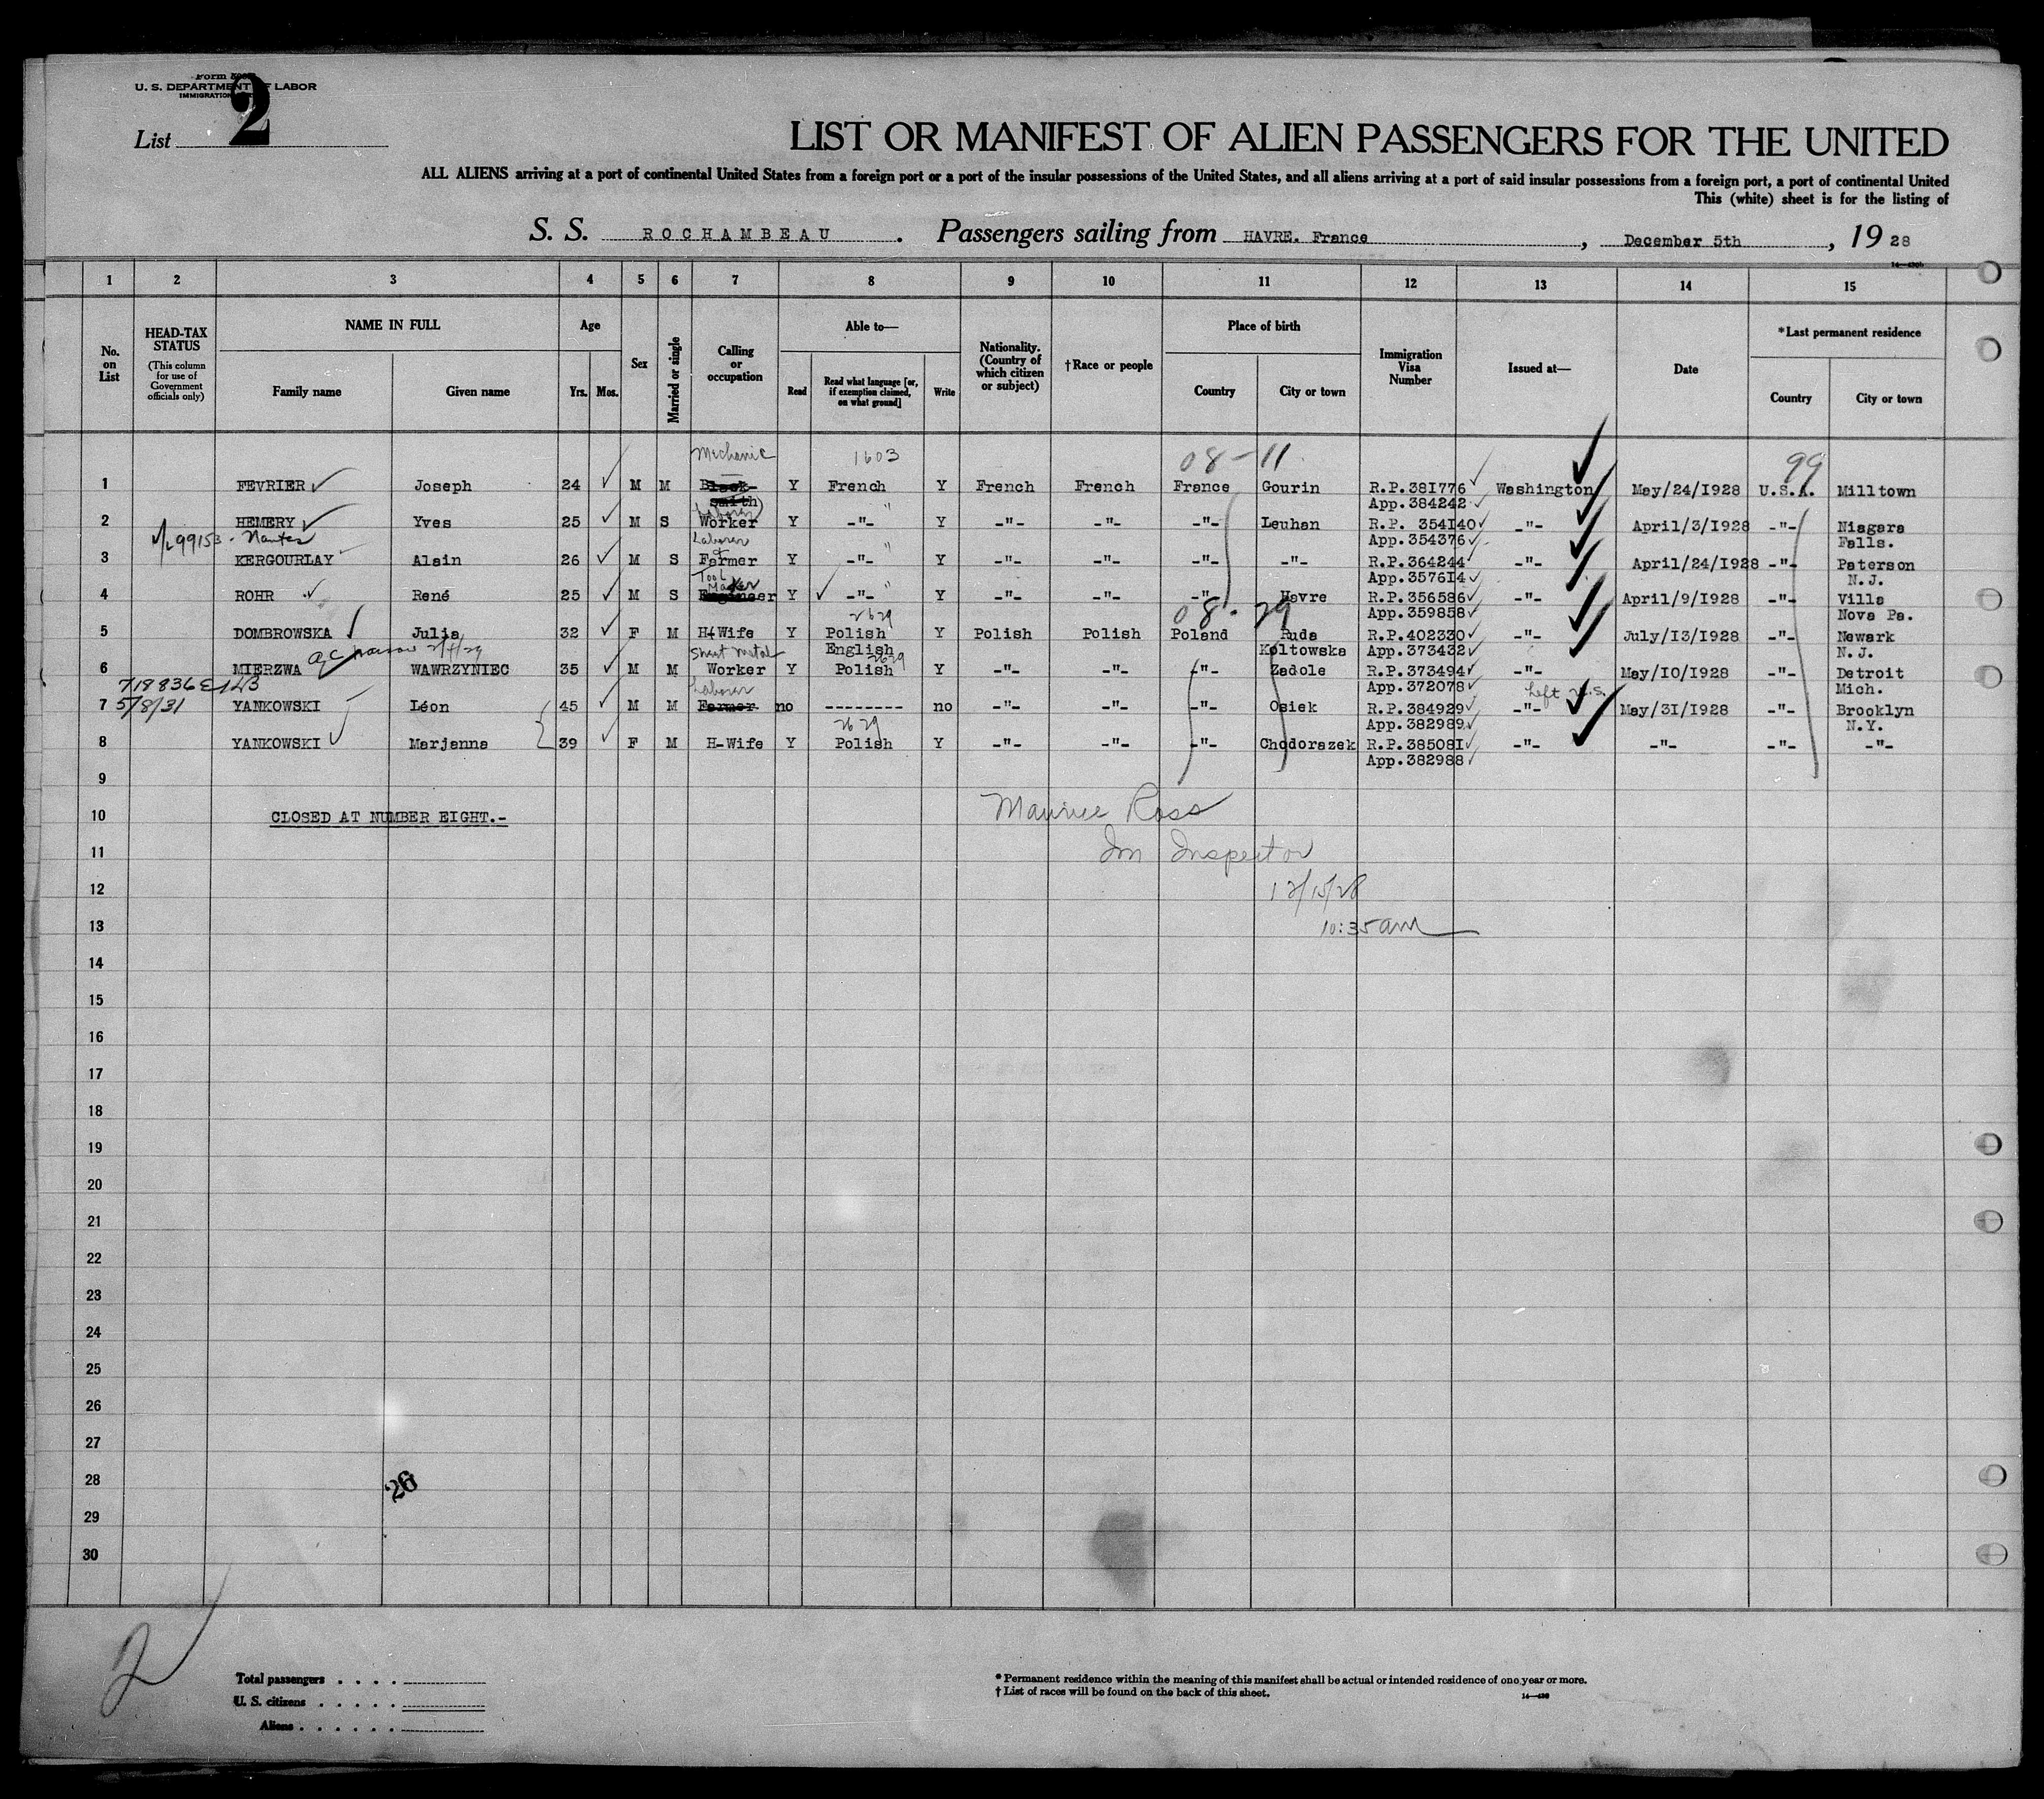 U. S. DEPARTMENT OF LABOR
List 2
LIST OR MANIFEST OF ALIEN PASSENGERS FOR THE UNITED
ALL ALIENS arriving at a port of continental United States from a foreign port or a port of the insular possessions of the United States, and all aliens arriving at a port of said insular possessions from a foreign port, a port of continental United
This (white) sheet is for the listing of
S. S. ROCHAMBEAU. Passengers sailing from HAVRE. France, December 5th, 19 28
1 2 3 4 5 6 7 8 9 10 11 12 13 14 15
No. on List
HEAD-TAX STATUS
(This column for use of Government officials only)
NAME IN FULL
Family name Given name
Age
Yrs. Mos.
Sex
Married or single
Calling or occupation
Able to—
Read
Read what language [or, if exemption claimed, on what ground]
Write
Nationality. (Country of which citizen or subject)
†Race or people
Place of birth
Country City or town
Immigration Visa Number
Issued at—
Date
*Last permanent residence
Country City or town
Mechanic 1603 08-11 99
1 FEVRIER Joseph 24 M M Black- Y French Y French French France Gourin R.P.381776 Washington May/24/1928 U.S.A. Milltown
smith App.384242
Laborer
2 HEMERY Yves 25 M S Worker Y -"- Y -"- -"- -"- Leuhan R.P. 354140 -"- April/3/1928 -"- Niagara
Laborer App.354376 Falls.
3 KERGOURLAY Alain 26 M S Farmer Y -"- Y -"- -"- -"- -"- R.P.364244 -"- April/24/1928 -"- Paterson
Tool Maker App.357614 N.J.
4 ROHR René 25 M S Engineer Y -"- Y -"- -"- -"- Havre R.P.356586 -"- April/9/1928 -"- Villa
2629 08-29 App.359858 Nova Pa.
5 DOMBROWSKA Julia 32 F M H-Wife Y Polish Y Polish Polish Poland Ruda R.P.402330 -"- July/13/1928 -"- Newark
Sheet Metal English Koltowska App.373432 N.J.
6 MIERZWA WAWRZYNIEC 35 M M Worker Y Polish 2629 Y -"- -"- -"- Zadole R.P.373494 -"- May/10/1928 -"- Detroit
Laborer App.372078 Left U.S. Mich.
7 5/8/31 YANKOWSKI Léon 45 M M Farmer no -------- no -"- -"- -"- Osiek R.P.384929 -"- May/31/1928 -"- Brooklyn
2629 App.382989 N.Y.
8 YANKOWSKI Marjanna 39 F M H-Wife Y Polish Y -"- -"- -"- Chodorazek R.P.385081 -"- -"- -"- -"-
App.382988
9
10 CLOSED AT NUMBER EIGHT.- Maurice Ross
11 Im Inspector
12 12/15/28
13 10:35 am
14
15
16
17
18
19
20
21
22
23
24
25
26
27
28 26
29
30
2
Total passengers
U. S. citizens
Aliens
* Permanent residence within the meaning of this manifest shall be actual or intended residence of one year or more.
† List of races will be found on the back of this sheet.